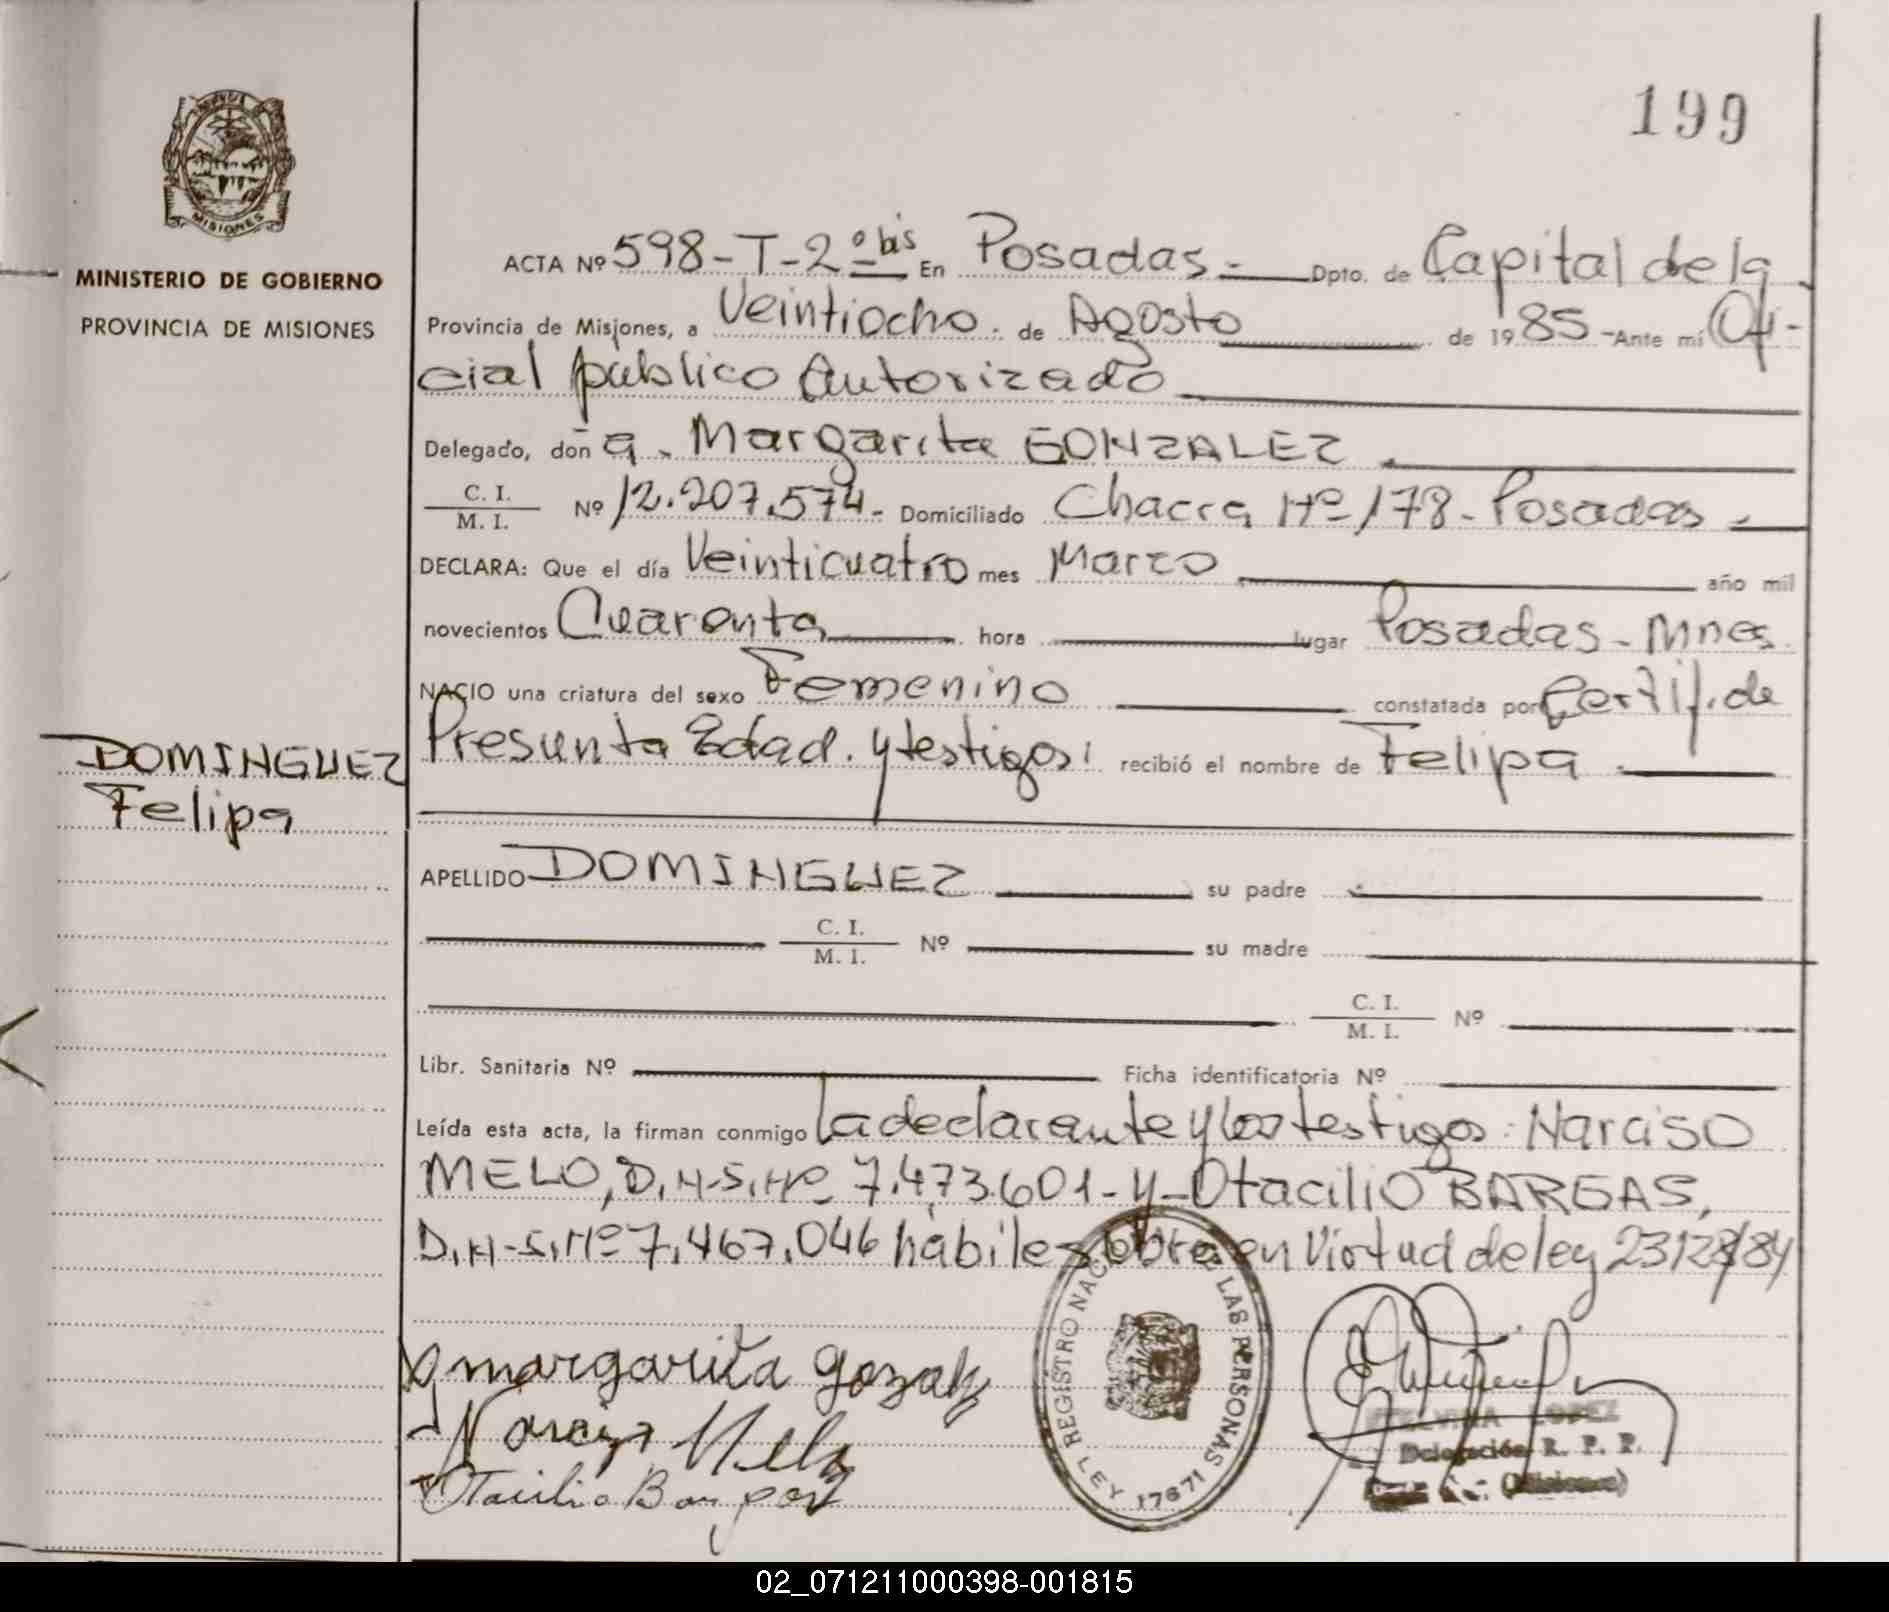 199
MISIONES
MINISTERIO DE GOBIERNO
PROVINCIA DE MISIONES
DOMINGUEZ
Felipa
ACTA Nº 598-T-2º bis En Posadas.- Dpto. de Capital de la
Provincia de Misiones, a Veintiocho. de Agosto de 1985.-Ante mí Ofi-
cial público Autorizado
Delegado, doña. Margarita GONZALEZ.
C. I. / M. I. Nº 12.207.574.- Domiciliado Chacra Nº 178- Posadas -
DECLARA: Que el día Veinticuatro mes Marzo año mil
novecientos Cuarenta hora lugar Posadas - Mnes.
NACIO una criatura del sexo Femenino constatada por Certif. de
Presunta Edad. y testigos; recibió el nombre de Felipa.
APELLIDO DOMINGUEZ su padre
C. I. / M. I. Nº su madre
C. I. / M. I. Nº
Libr. Sanitaria Nº Ficha identificatoria Nº
Leída esta acta, la firman conmigo la declarante y los testigos: Narciso
MELO, D.N-I.Nº 7.473.601- y - Otacilio BARGAS,
D.N-I.Nº 7.467.046 hábiles obra en Virtud de ley 23128/84
margarita gozalz
Narciso Melo
Otacilio Bargas
REGISTRO NAC LAS PERSONAS
LEY 17671
ETELVINA LOPEZ
Delegación R. P. P.
(Misiones)
02_071211000398-001815